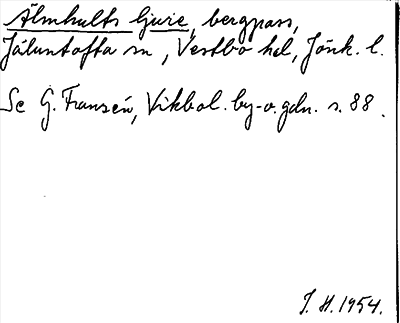 Älmhults Ljuie, bergpass,
Jäluntofta sn, Vestbo hd, Jönk. l.
Se G. Franzén, Vikbol. by-o. gdn. s. 88.
J. H. 1954.